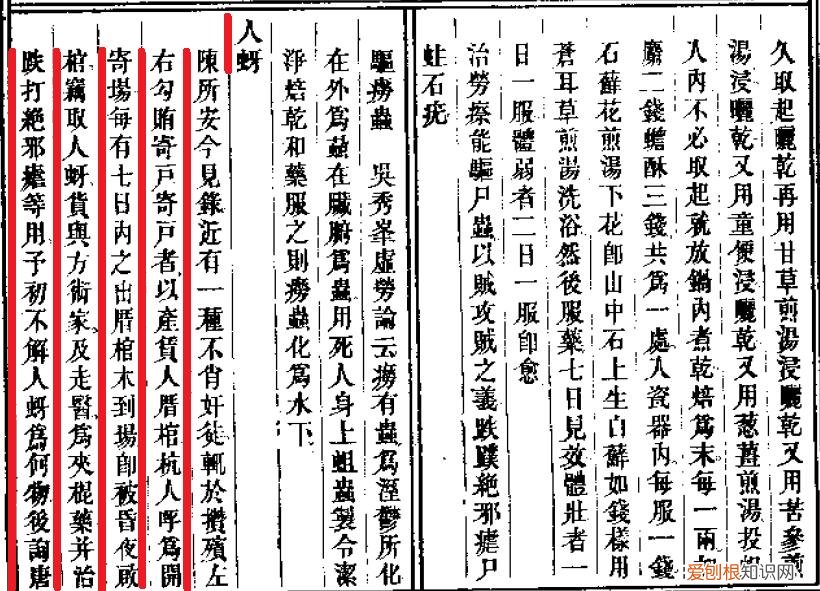 久取起曬乾再用甘草煎湯浸曬乾又用苦參煎
湯浸曬乾又用童便浸曬乾又用葱薑煎湯投
人內不必取起就放鍋內煮乾焙爲末每一兩加
麝二錢蟾酥三錢共爲一處入瓷器內每服一錢
石蘚花煎湯下花卽山中石上生白蘚如錢樣用
蒼耳草煎湯洗浴然後服藥七日見效體壯者一
日一服體弱者二日一服卽愈
治勞瘵能驅尸蟲以賊攻賊之義跌蹼絕邪瘧尸
蛀石疣
驅癆蟲 吳秀峯虛勞論云癆有蟲爲溼鬱所化
在外爲蝨在臟腑爲蟲用死人身上蛆蟲製令潔
淨焙乾和藥服之則癆蟲化爲水下
人蚜
陳所安今見錄近有一種不肖奸徒輒於攢殯左
右勾賄寄戶寄戶者以產賃人厝棺杭人呼爲開
寄場每有七日內之出厝棺木到場卽被昏夜啟
棺竊取人蚜貨與方術家及走醫爲夾棍藥并治
跌打絕邪瘧等用予初不解人蚜爲何物後論唐
爱刨根知识网